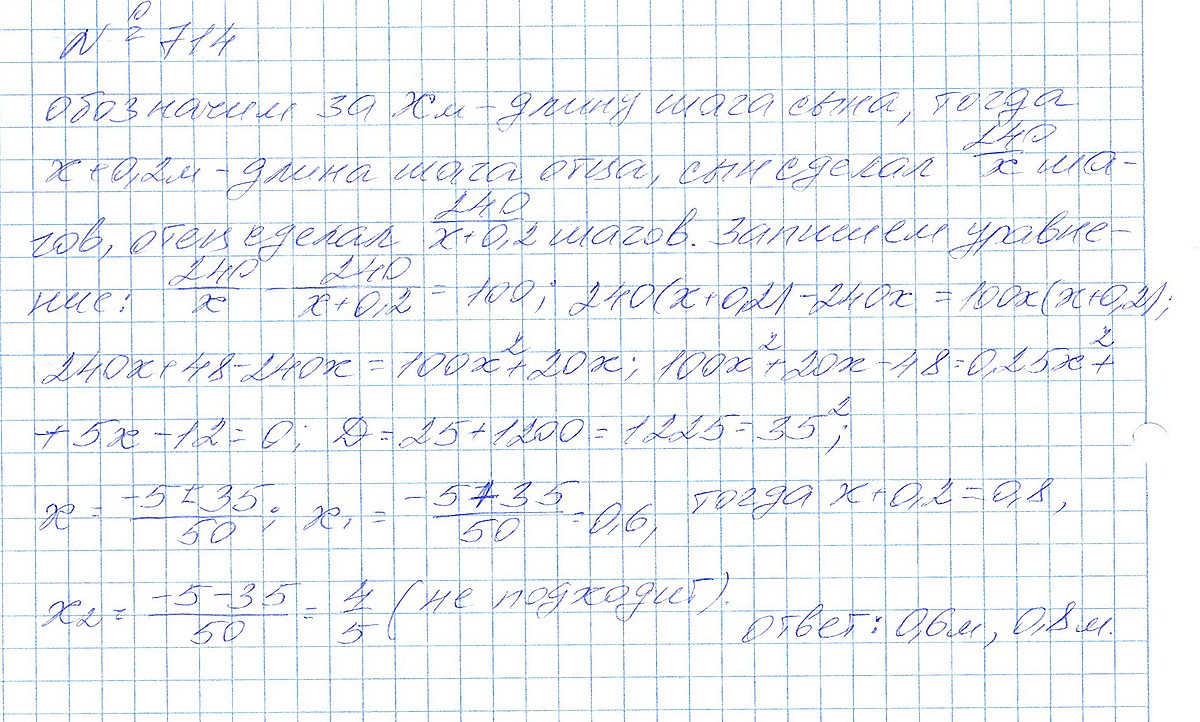 № 714
обозначим за xм - длину шага сына, тогда
x+0,2м - длина шага отца, сын сделал 240/x ша-
гов, отец сделал 240/(x+0,2) шагов. Запишем уравне-
ние: 240/x - 240/(x+0,2) = 100; 240(x+0,2) - 240x = 100x(x+0,2);
240x+48-240x = 100x²+20x; 100x²+20x-48=0, 25x²+
+5x-12=0; D=25+1200=1225=35²;
x = (-5±35)/50; x₁ = (-5+35)/50 = 0,6, тогда x+0,2=0,8,
x₂ = (-5-35)/50 = 4/5 (не подходит).
ответ: 0,6м, 0,8м.